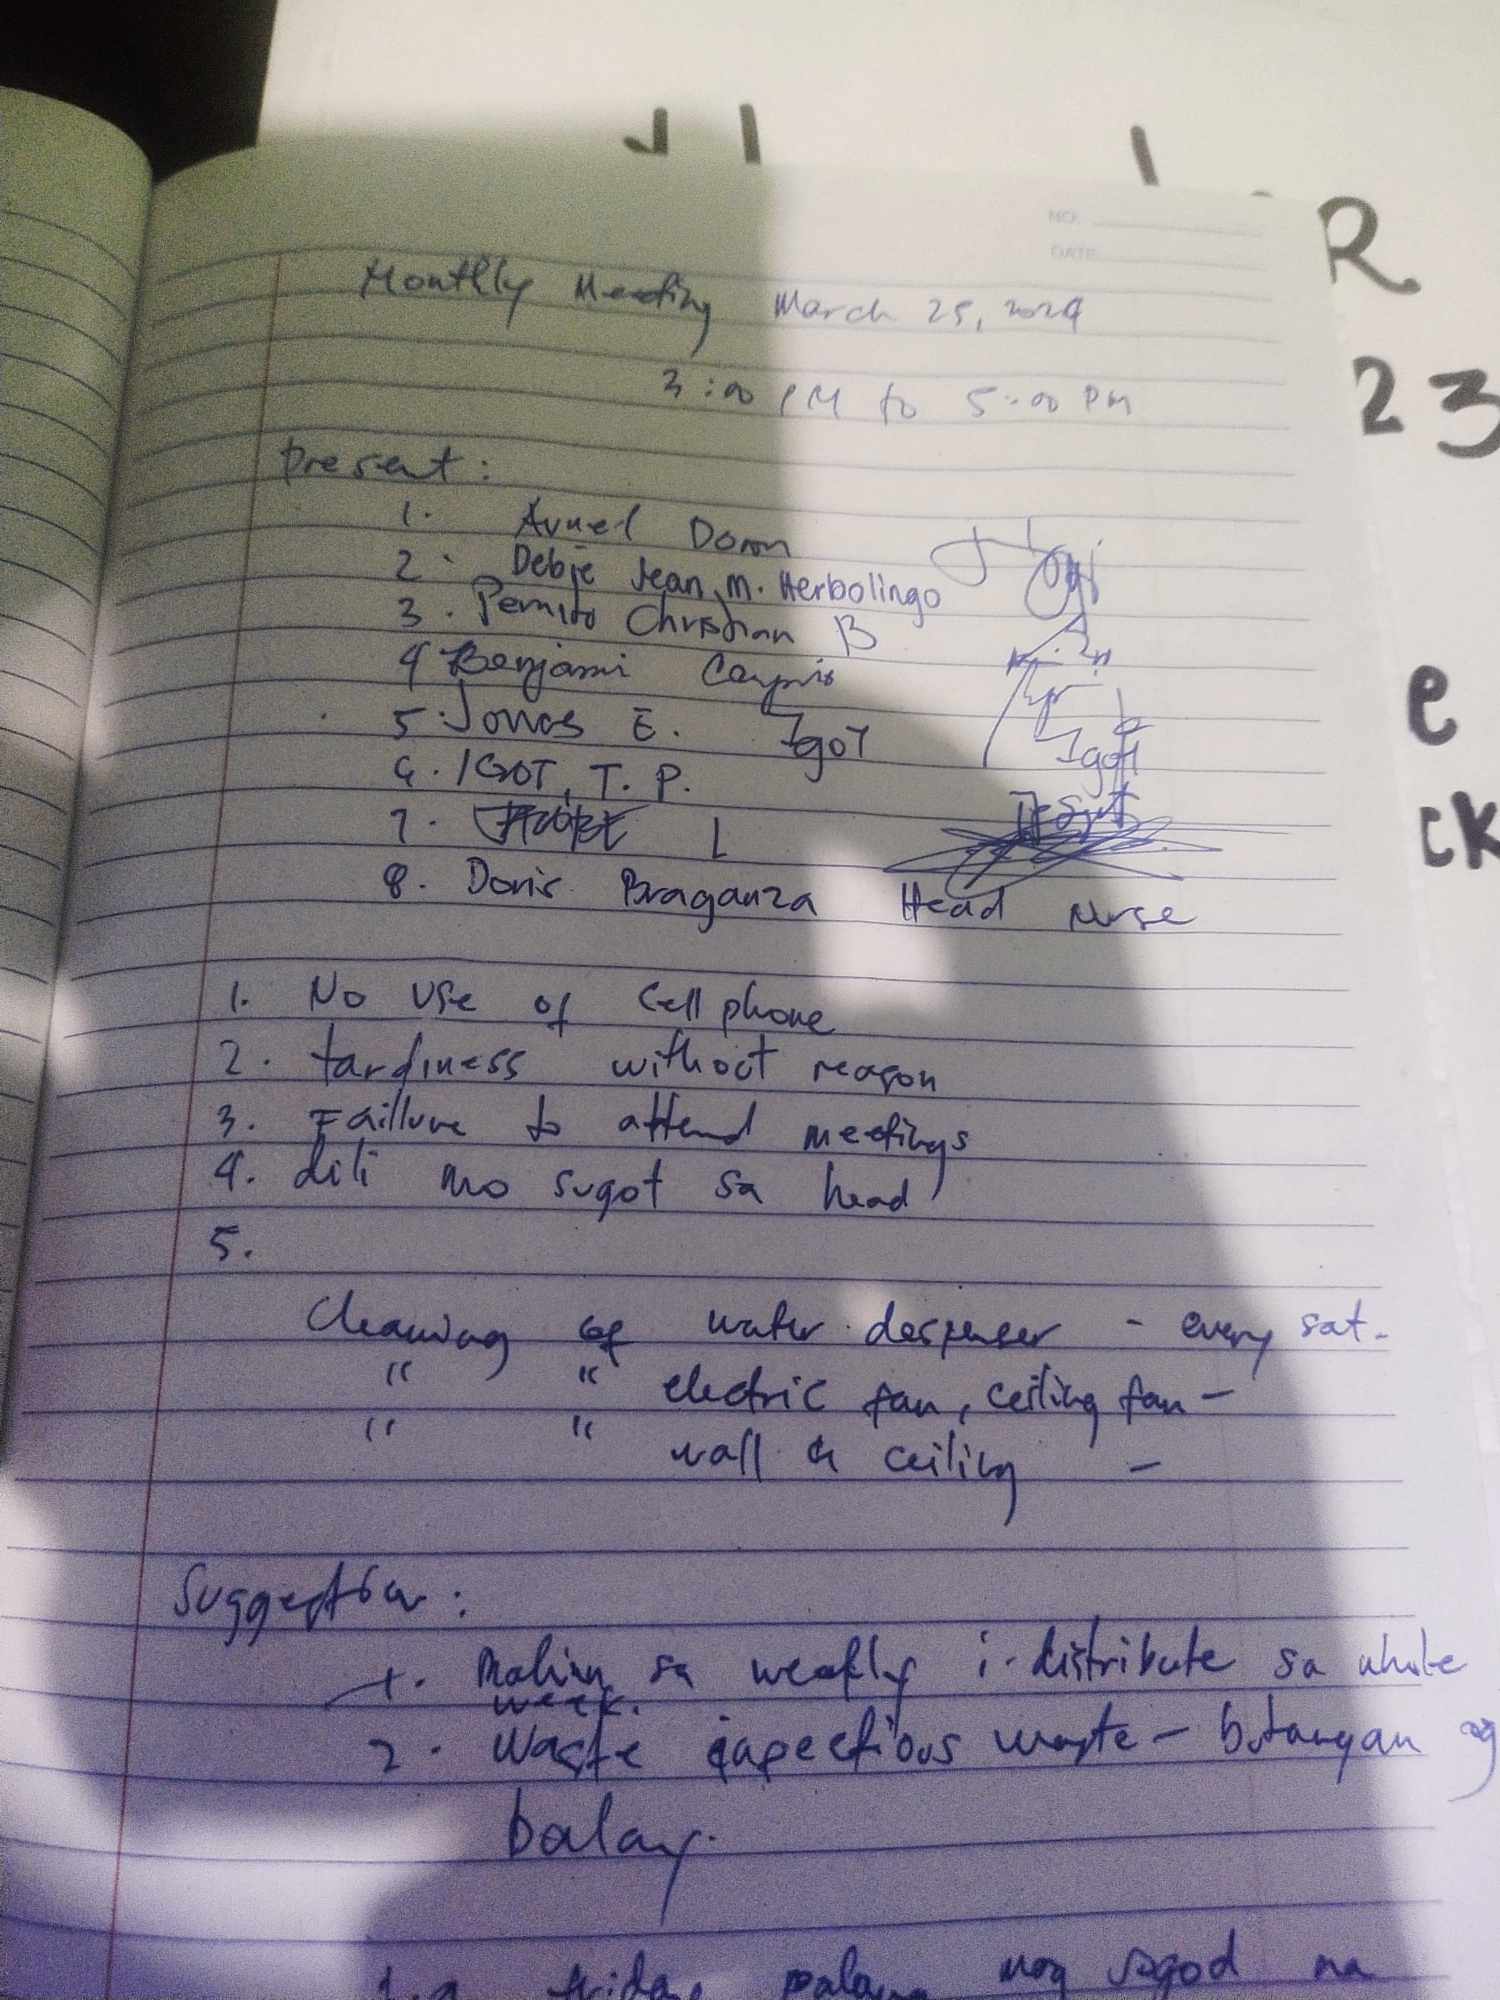 R
23
e
ck
NO.
DATE
Monthly Meeting March 25, 2024
3:00 PM to 5:00 PM
Present:
1. Arnel Doron
2. Debie Jean M. Herbolingo
3. Pernito Christian B
4 Benjami
5. Jonas E. Igot Igot
6. IGOT, T. P.
7. L
8. Doris Braganza Head Nurse
1. No use of Cellphone
2. tardiness without reason
3. Faillure to attend meetings
4. dili mo sugot sa head
5.
Cleaning of water despenser - every sat.
" " electric fan, ceiling fan -
" " wall & ceiling -
Suggestion:
1. sa weekly i-distribute sa whole
week.
2. Waste inpectious waste - butangan ug
balay.
friday palang nag sugod na